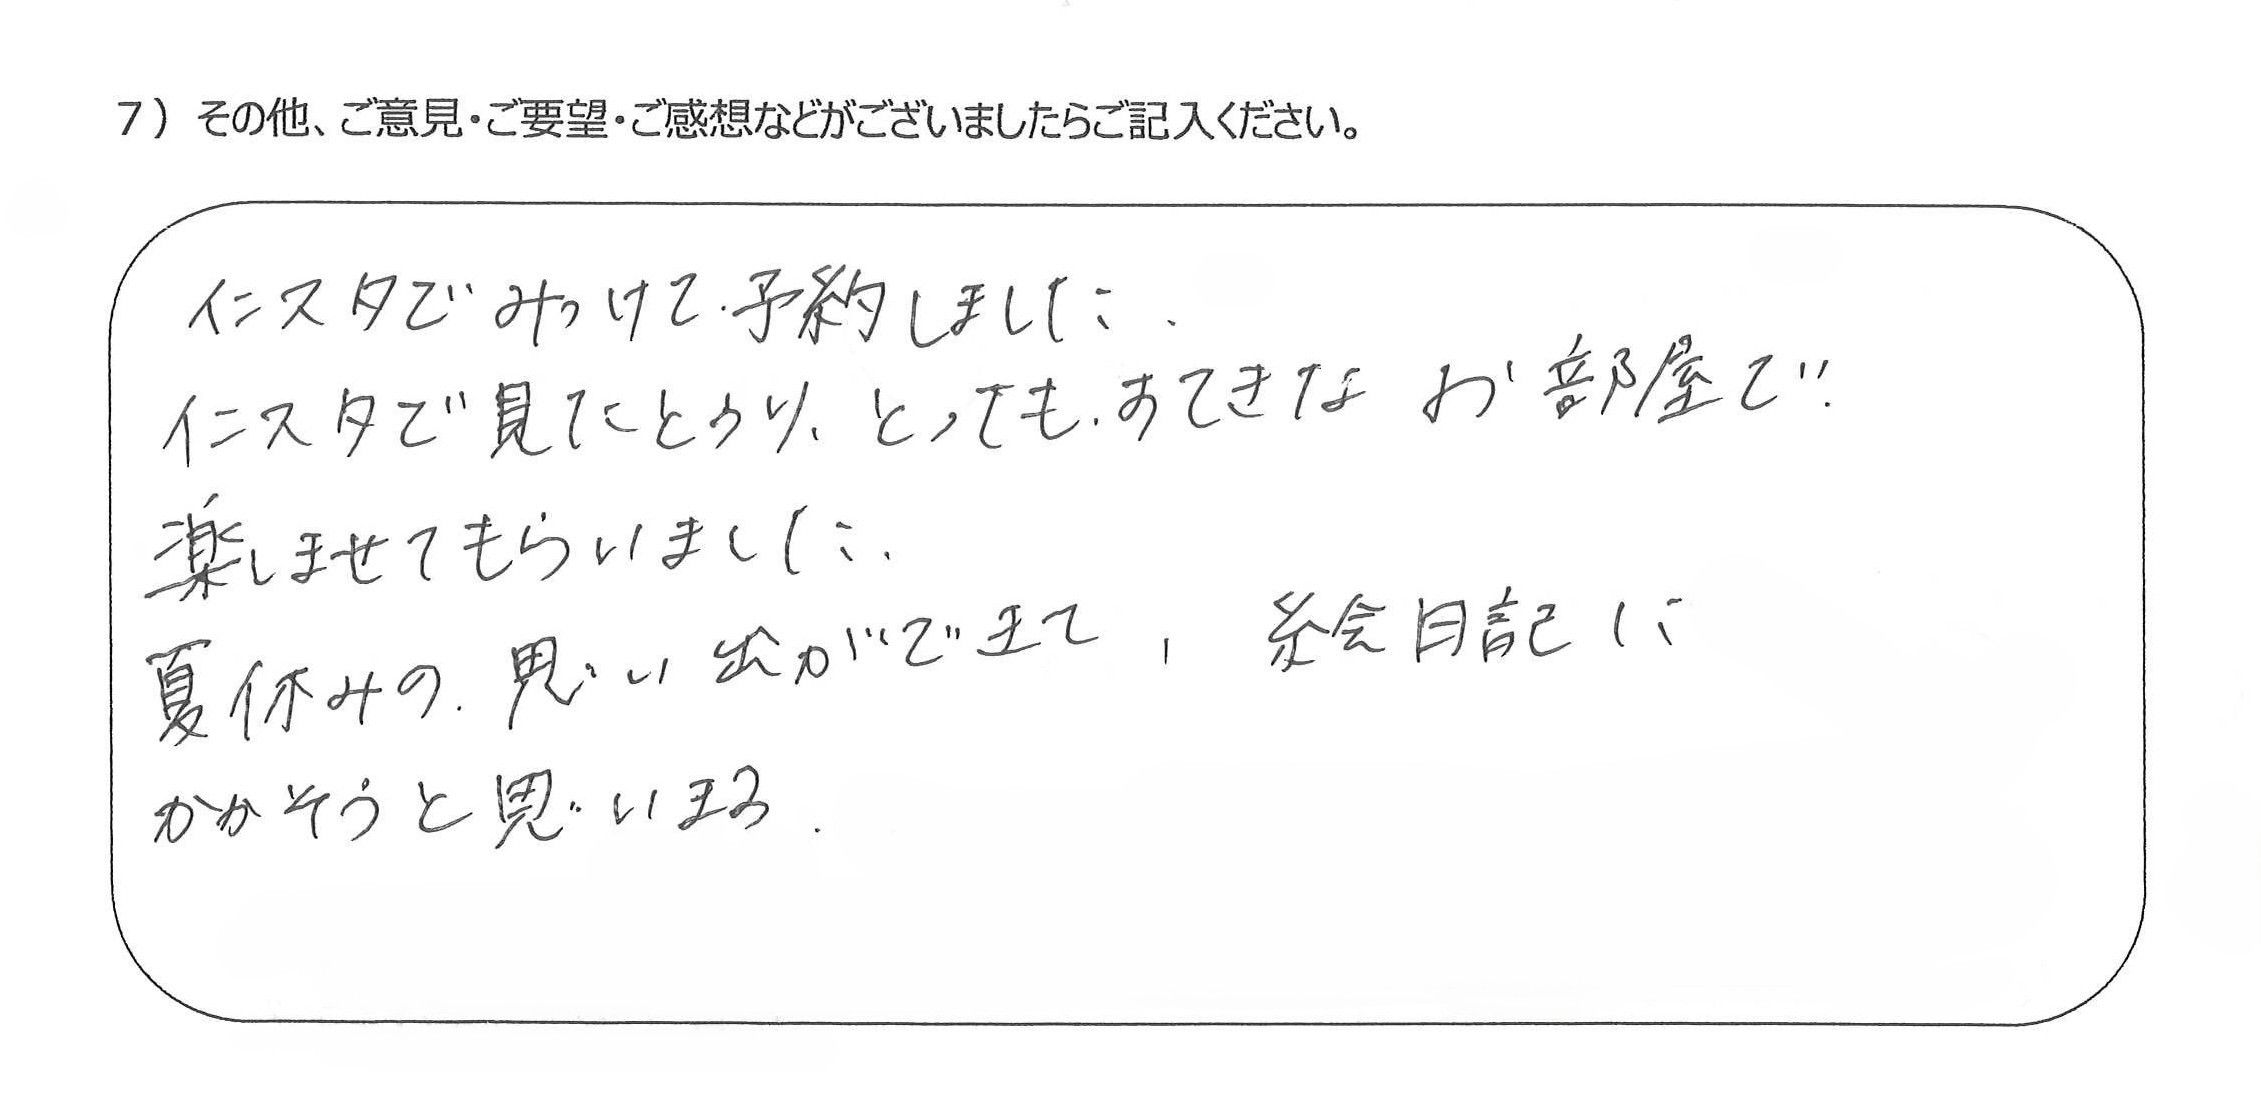 7）その他、ご意見・ご要望・ご感想などがございましたらご記入ください。
インスタでみつけて、予約しました。
インスタで見たとうり、とっても、すてきなお部屋で、
楽しませてもらいました。
夏休みの、思い出ができて、絵日記に
かかそうと思います。